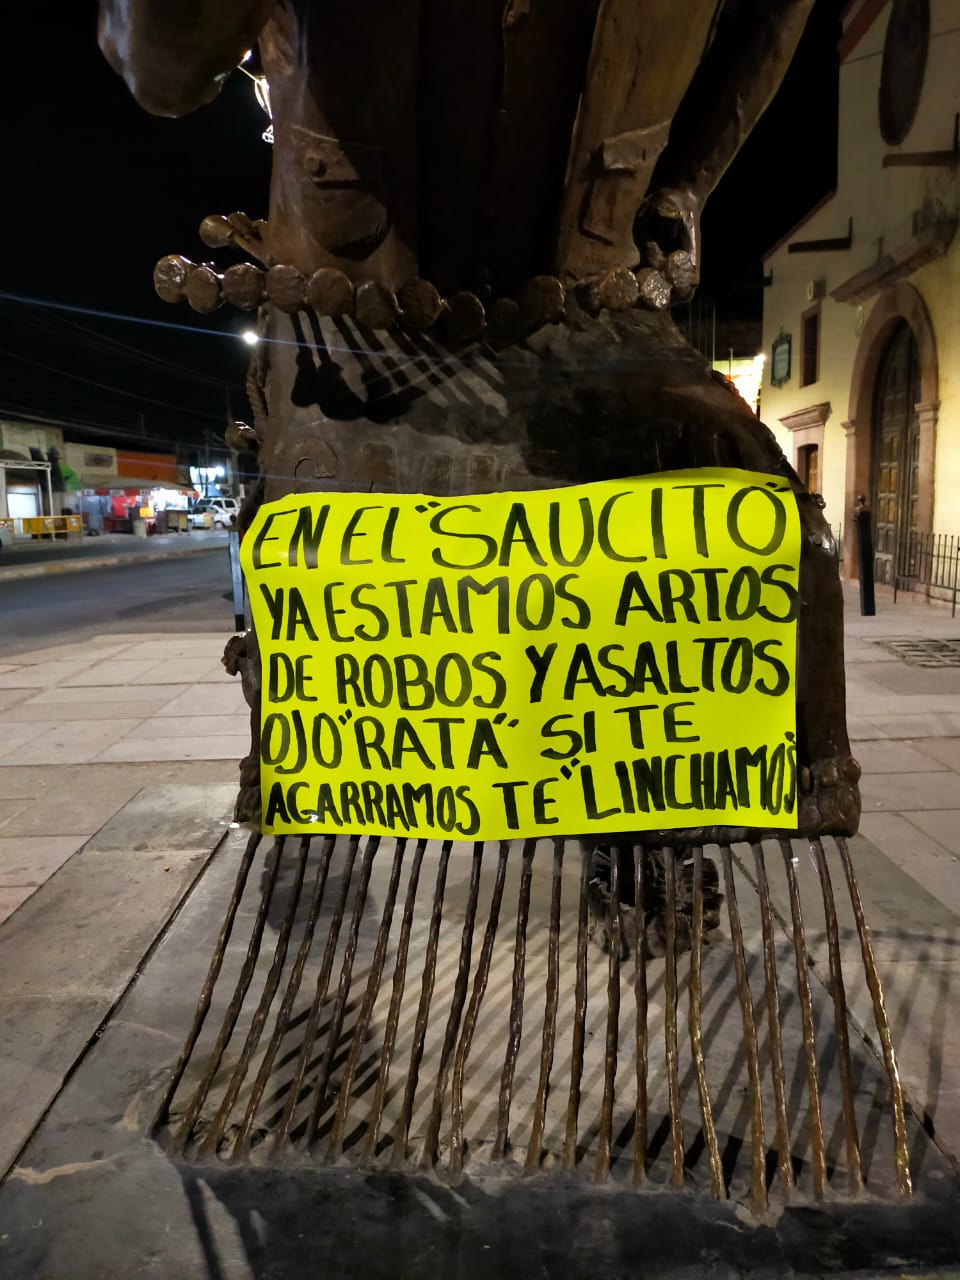 EN EL "SAUCITO"
YA ESTAMOS ARTOS
DE ROBOS Y ASALTOS
OJO "RATA" SI TE
AGARRAMOS TE "LINCHAMOS"